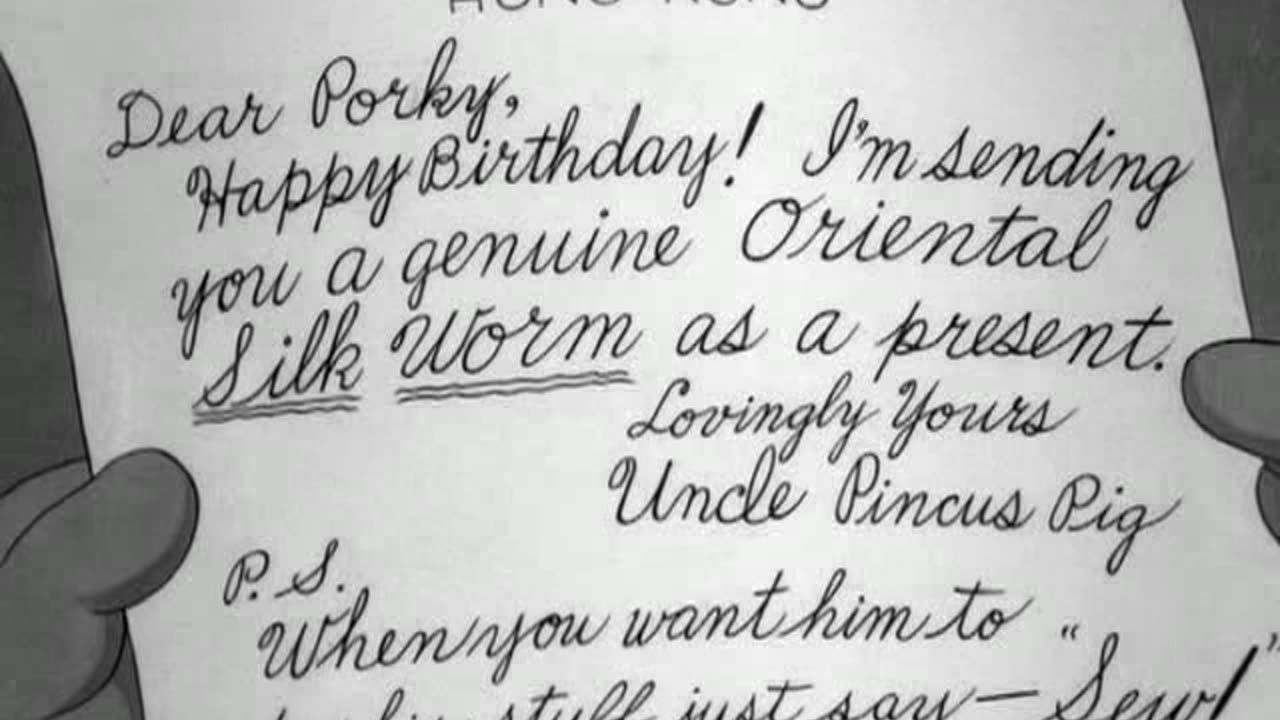 HONG KONG
Dear Porky,
Happy Birthday! I'm sending
you a genuine Oriental
Silk Worm as a present.
Lovingly Yours
Uncle Pincus Pig
P. S.
When you want him to
stuff just say — "Sew!"